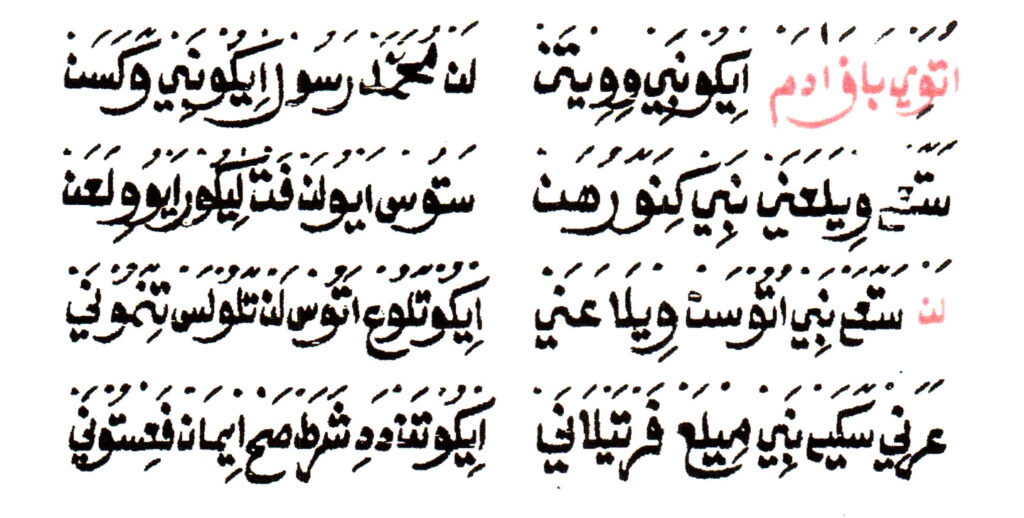 اتوي بافا ادم ايكو نبي وويتن لن محمد رسول ايكو نبي وكسن
ستعه ويلعني نبي كنورهن ستوس ايوو لن فت ليكور ايوو ويلعن
لن ستعه نبي اتوست ويلاعني ايكو تلوع اتوس لن تلولس تنموني
عرني سكيه نبي ميلع فرتيلاني ايكو تن دد شرط صح ايمان فعستوني